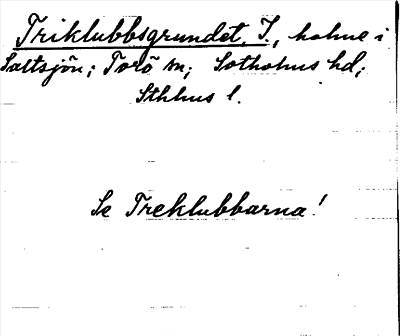 Triklubbsgrundet, I., holme i
Saltsjön; Torö sn; Sotholms hd;
Sthlms l.
Se Treklubbarna!